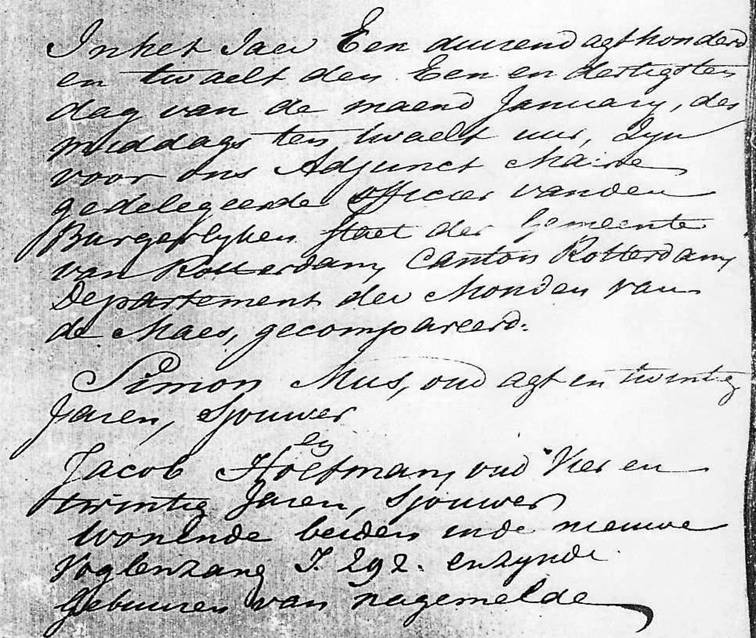 In het Jaer Een duusend agthonderd
en twaelf den Een en dertigsten
dag van de maend January, des
middags ten twaelf uur, Zyn
voor ons Adjunct Maire
gedelegeerde officier vanden
Burgerlyken Staet der Gemeente
van Rotterdam, Canton Rotterdam,
Departement der Monden van
de Maes, gecompareerd:
Simon Mus, oud agt en twintig
Jaren, Sjouwer
en
Jacob Hoffman, oud Vier en
twintig Jaren, Sjouwer
Wonende beiden inde nieuwe
Voglenzang I. 292. en zynde
gebuuren van nagemelde